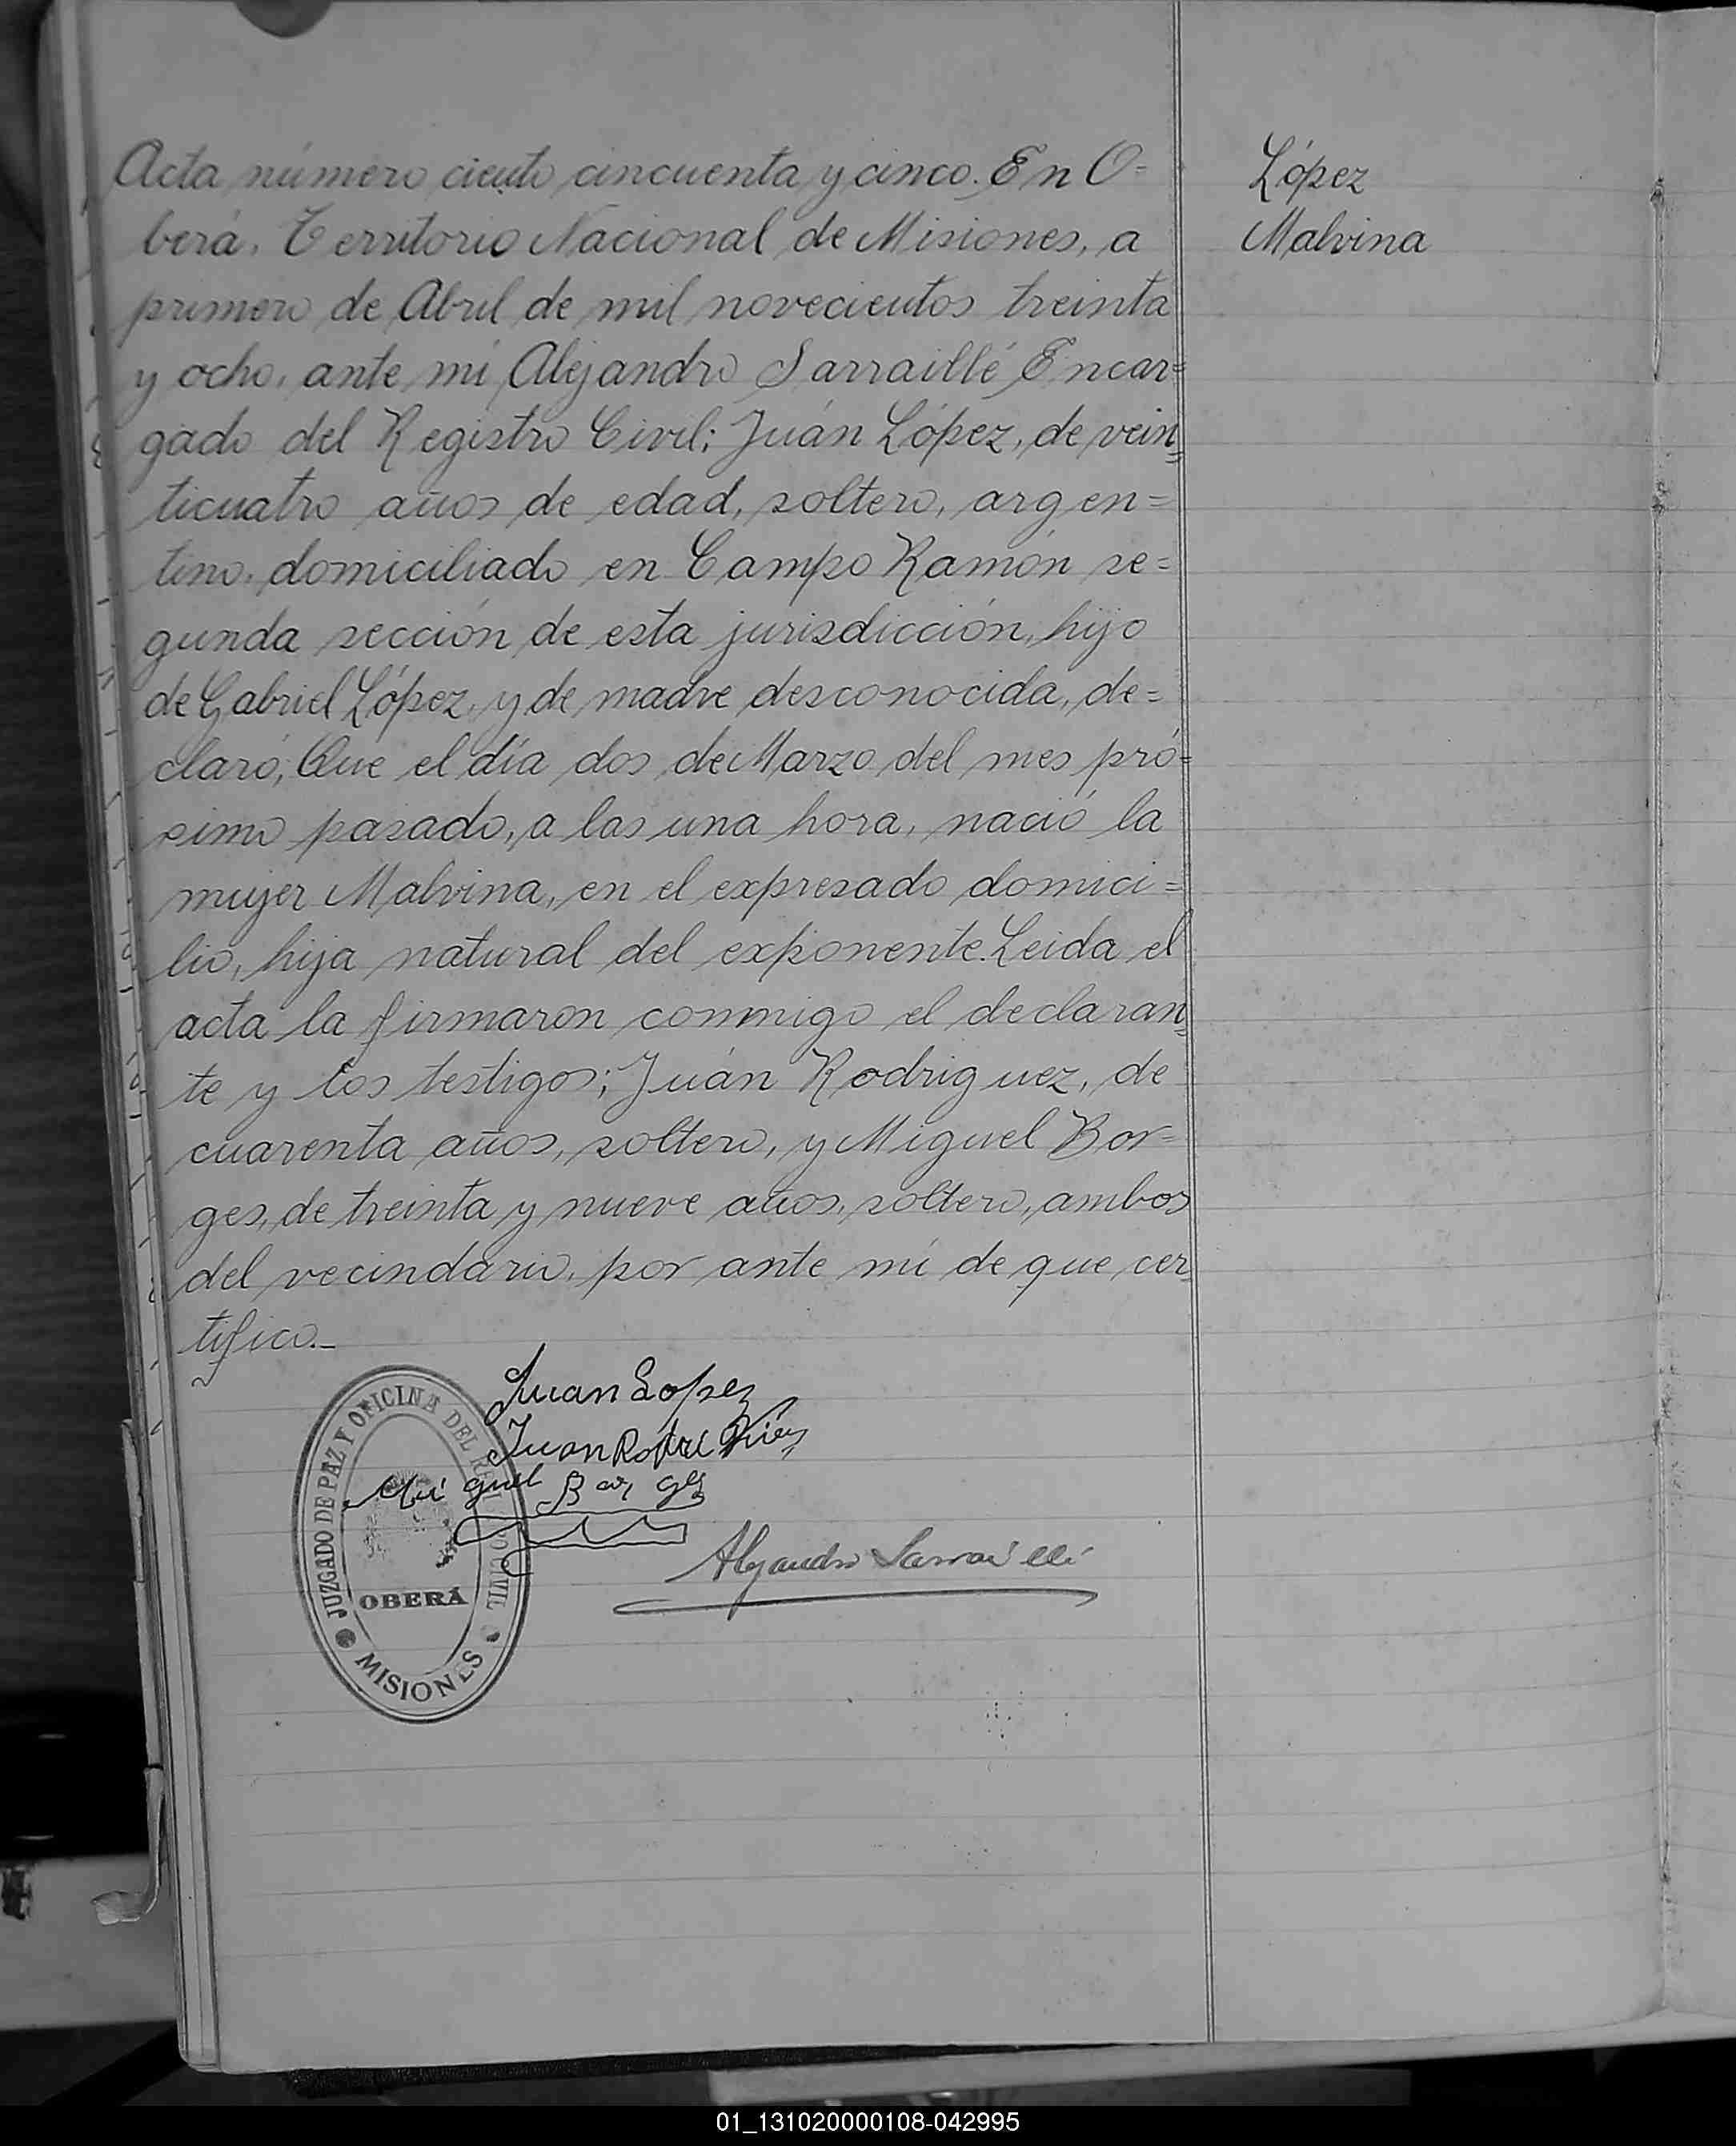 Acta número ciento cincuenta y cinco. En O=
berá, Territorio Nacional de Misiones, a
primero de Abril de mil novecientos treinta
y ocho, ante mí Alejandro Sarraillé Encar=
gado del Registro Civil; Juán López, de vein=
ticuatro años de edad, soltero, argen=
tino, domiciliado en Campo Ramón se=
gunda sección de esta jurisdicción, hijo
de Gabriel López y de madre desconocida, de=
claró; Que el día dos de Marzo del mes pró=
simo pasado, a las una hora, nació la
mujer Malvina, en el expresado domici=
lio, hija natural del exponente. Leida el
acta la firmaron conmigo el declaran=
te y los testigos; Juán Rodriguez, de
cuarenta años, soltero, y Miguel Bor=
ges, de treinta y nueve años, soltero, ambos
del vecindario, por ante mí de que cer
tifico.-
Juan Lopez
Juan
Miguel Borges
Alejandro Sarraillé
JUZGADO DE PAZ Y OFICINA DEL REGISTRO CIVIL
OBERÁ
MISIONES
López
Malvina
01_131020000108-042995